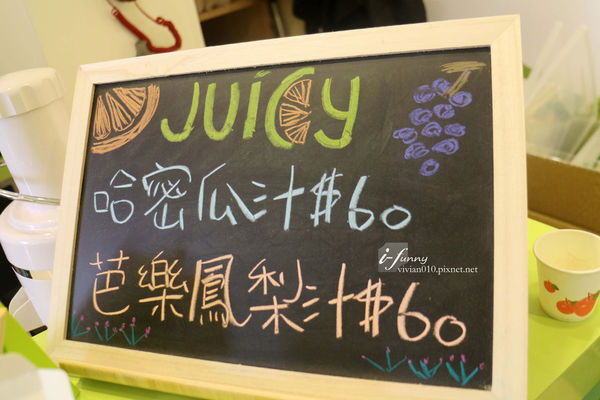 JUICY
哈密瓜汁$60
i-funny
vivian010.pixnet.net
芭樂鳳梨汁$60